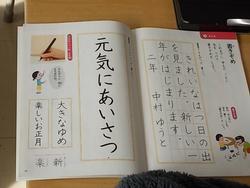 書きぞめ
きれいな は一日の出
を見ました。新しい一
年がはじまります。
二年 中村 ゆうと
元気にあいさつ
大きなゆめ
楽しいお正月
新
楽